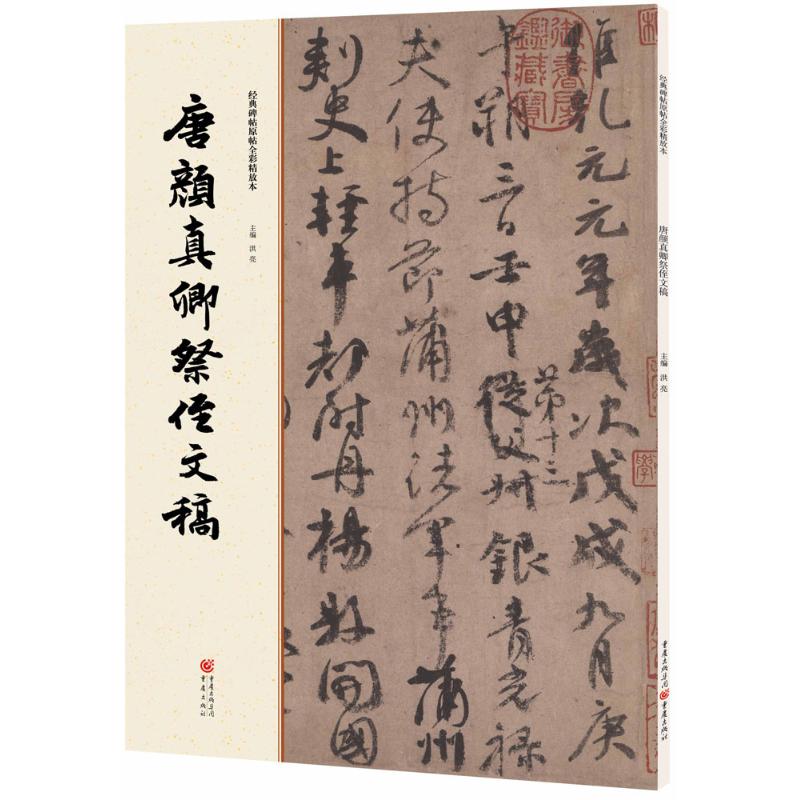 经典碑帖原帖全彩精放本
主编 洪亮
唐顏真卿祭侄文稿
重庆出版集团
重庆出版社
維乾元元年歲次戊戌九月庚
午朔三日壬申從父叔銀青光祿
第十三
夫使持節蒲州諸軍事蒲州
刺史上輕車都尉丹楊縣開國
御書房鑑藏寶
经典碑帖原帖全彩精放本
唐颜真卿祭侄文稿
主编 洪亮
重庆出版集团
重庆出版社